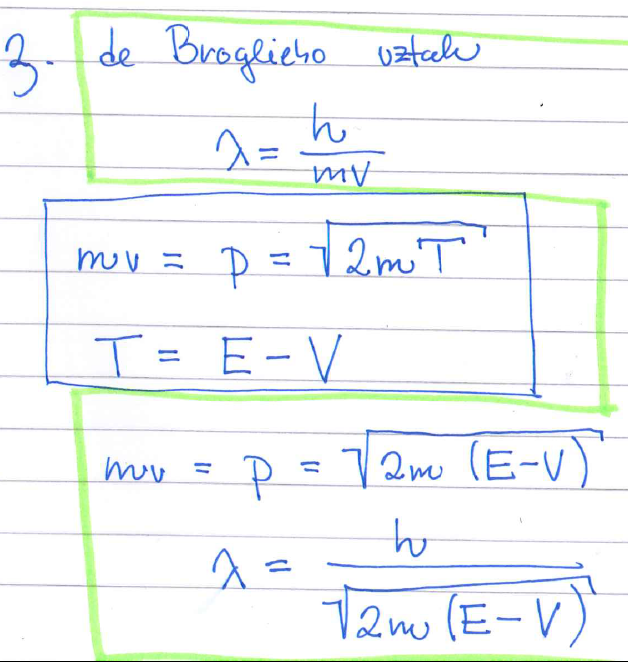 3. de Broglieho vztah
λ = h / mv
mv = p = √2mT
T = E - V
mv = p = √2m (E-V)
λ = h / √2m (E-V)